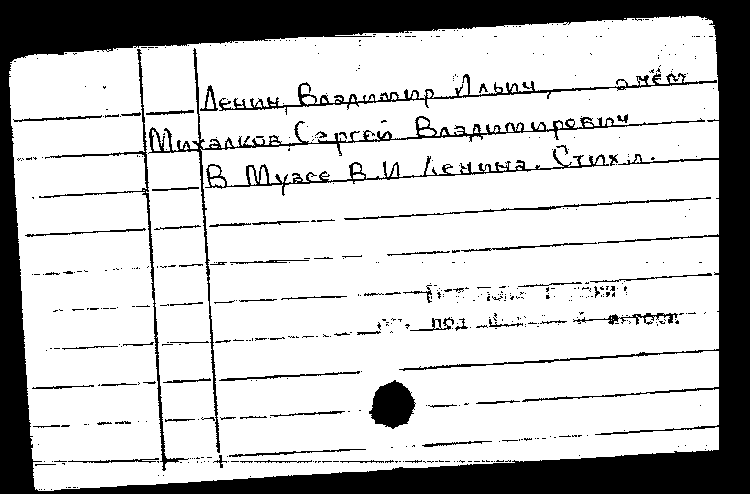 Ленин, Владимир Ильич, о нём
Михалков, Сергей Владимирович
В Музее В.И Ленина. Стихи.
под автора